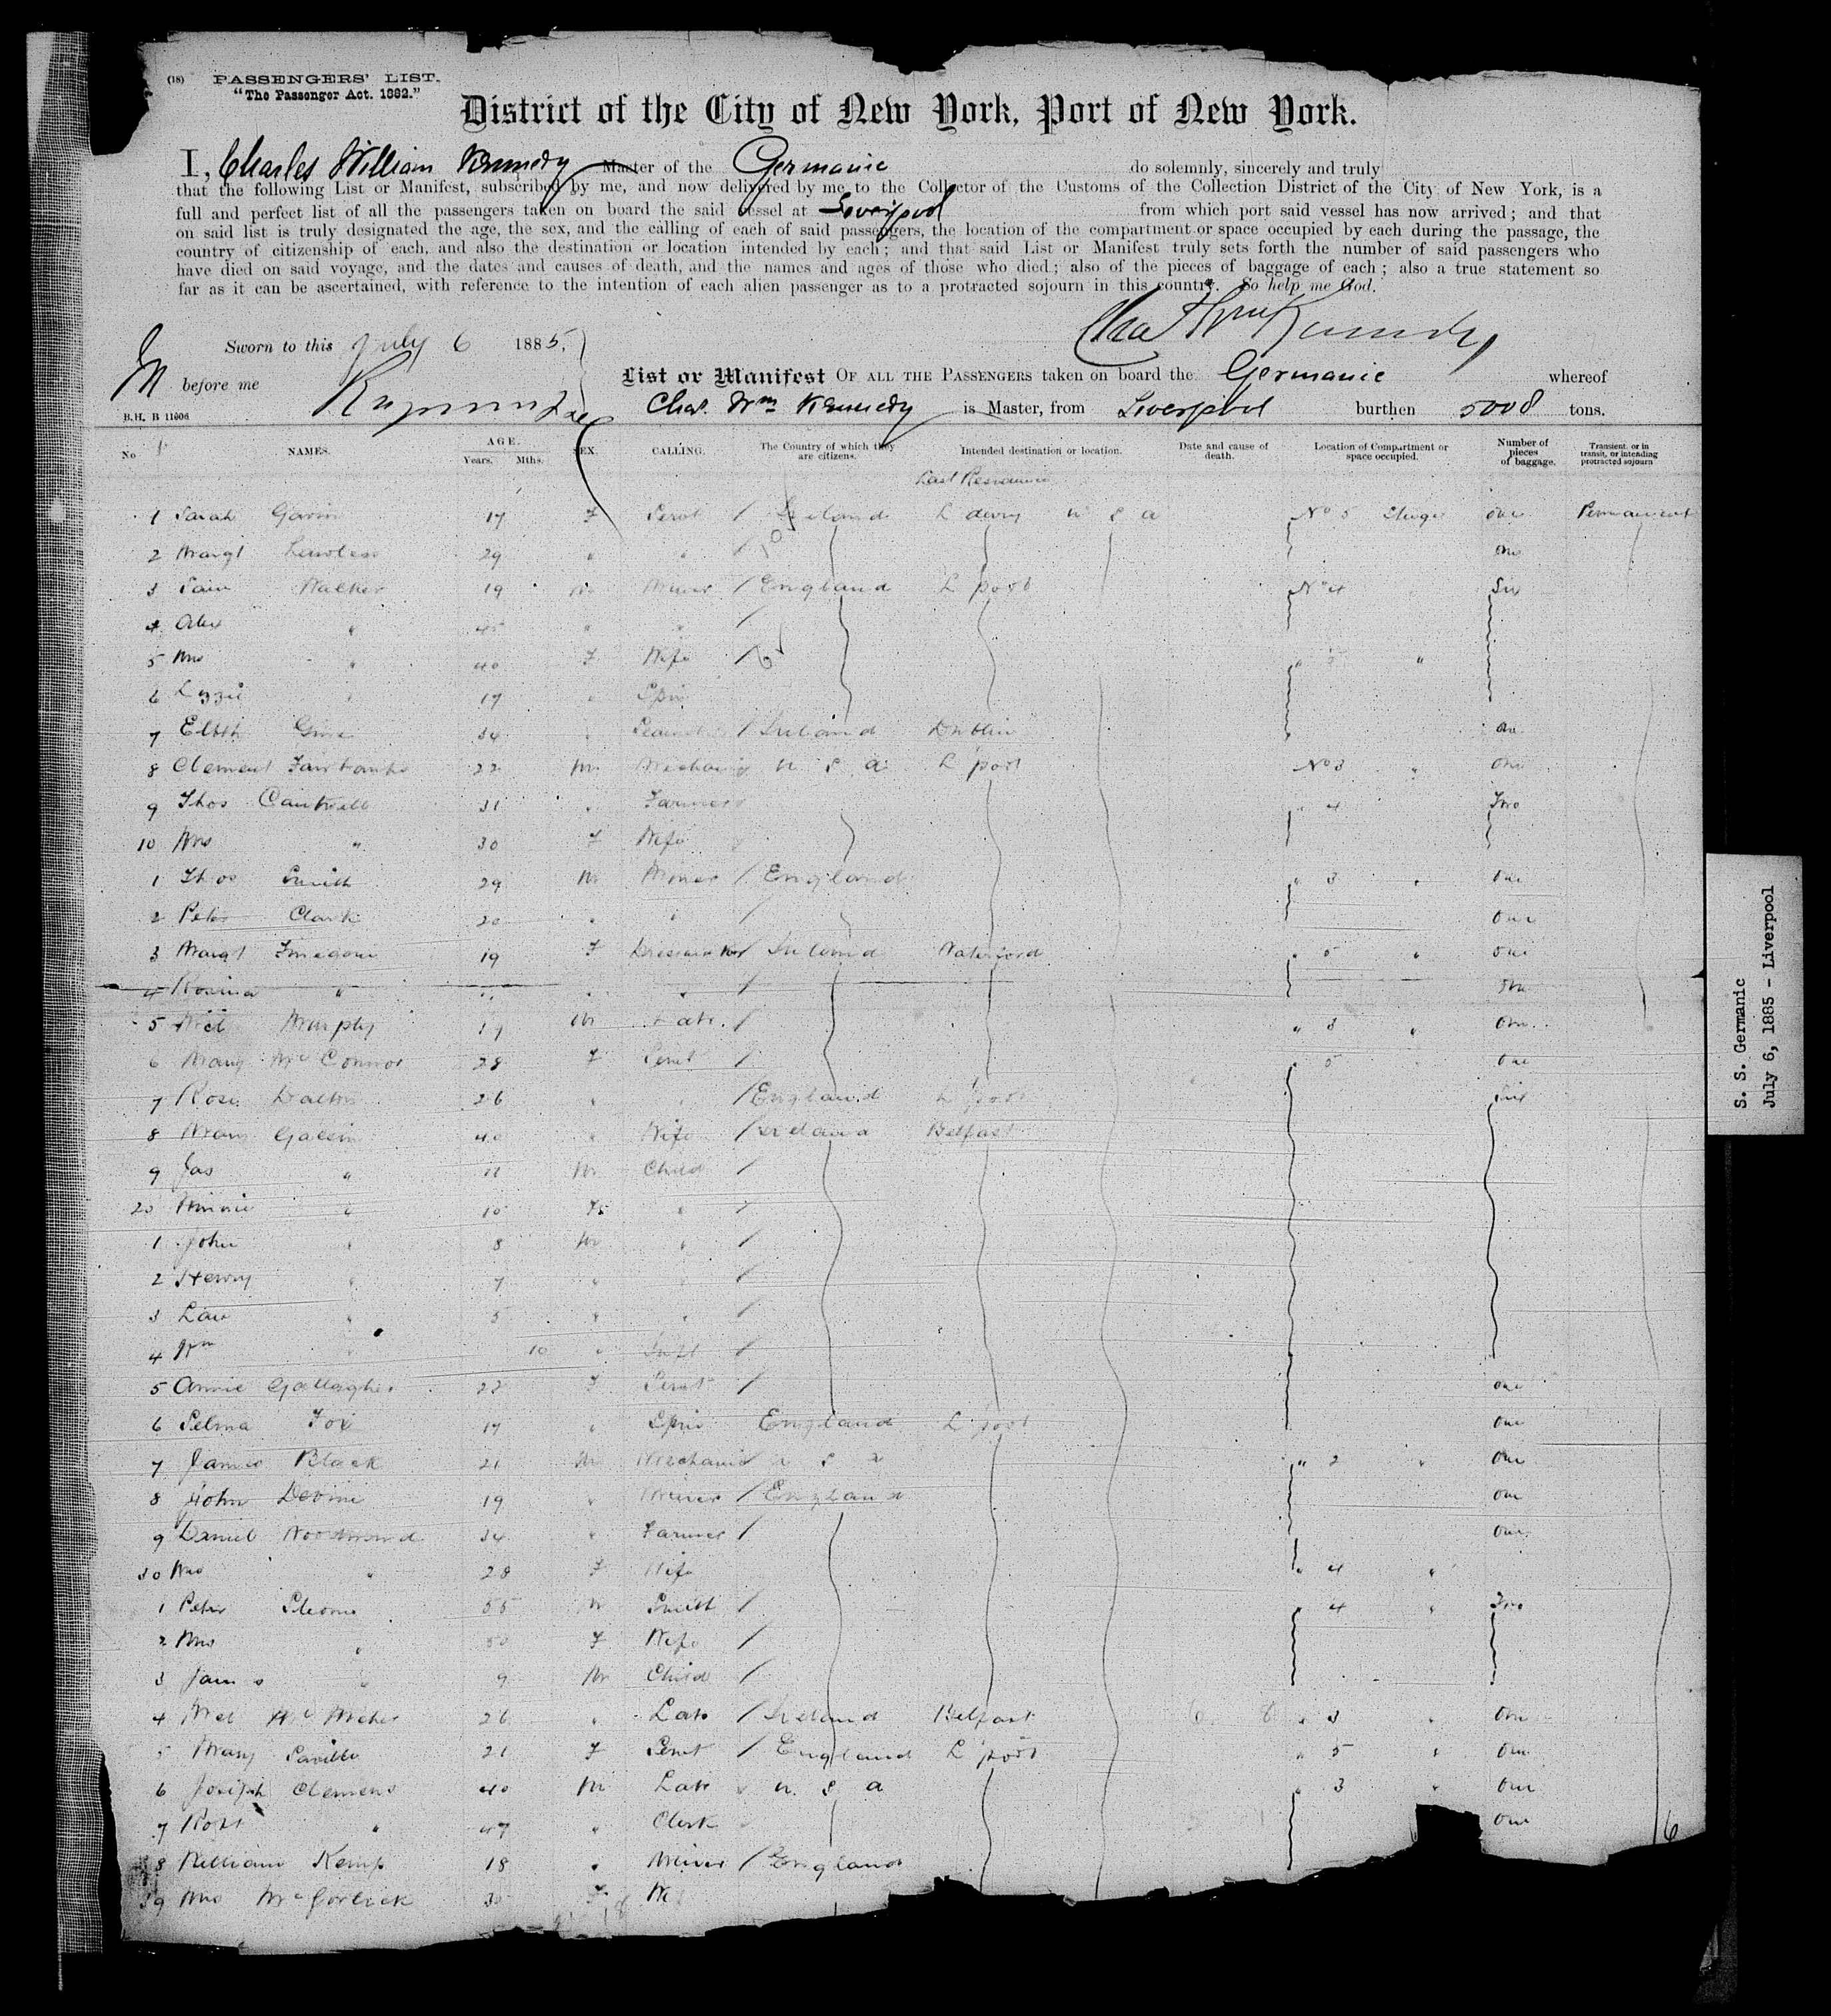 (18) PASSENGERS' LIST.
"The Passenger Act. 1882."
District of the City of New York, Port of New York.
I, Charles William Kennedy Master of the Germanic do solemnly, sincerely and truly
that the following List or Manifest, subscribed by me, and now delivered by me to the Collector of the Customs of the Collection District of the City of New York, is a
full and perfect list of all the passengers taken on board the said vessel at Liverpool from which port said vessel has now arrived; and that
on said list is truly designated the age, the sex, and the calling of each of said passengers, the location of the compartment or space occupied by each during the passage, the
country of citizenship of each, and also the destination or location intended by each; and that said List or Manifest truly sets forth the number of said passengers who
have died on said voyage, and the dates and causes of death, and the names and ages of those who died; also of the pieces of baggage of each; also a true statement so
far as it can be ascertained, with reference to the intention of each alien passenger as to a protracted sojourn in this country. So help me God.
Chas Wm Kennedy
Sworn to this July 6 1885,
before me
List or Manifest OF ALL THE PASSENGERS taken on board the Germanic whereof
B.H. B 11606 Chas. Wm Kennedy is Master, from Liverpool burthen 5008 tons.
No NAMES. AGE. Years. Mths. SEX. CALLING. The Country of which they are citizens. Intended destination or location. Date and cause of death. Location of Compartment or space occupied. Number of pieces of baggage. Transient, or in transit, or intending protracted sojourn
Last Residence
1 Sarah Gavin 17 F Servt / Ireland L derry U S A No 5 Stege one Permanent
2 Margt Lawless 29 " " / one
3 Sam Walker 19 M Miner / England L'pool No 4 Six
4 Alex " 45 " " /
5 Mrs " 40 F Wife / " 5 "
6 Lizzie " 17 " Spin
7 Elbth 34 " / Ireland Dublin one
8 Clement Fairbanks 22 M Mechanic U S A L'pool No 3 " one
9 Thos Cantwell 31 " Farmer " 4 Two
10 Mrs " 30 F Wife
1 Thos Smith 29 M Miner / England " 3 " one
2 Peter Clark 20 " " / one
3 Margt Finegan 19 F Dressmaker Ireland Waterford " 5 " one
4 Rosina " " " /  one
5 Ml Murphy 17 M Labr. / " 3 " one
6 Mary McConnor 28 F Servt / " 5 one
7 Rose Dalton 26 " " / England L'pool Six
8 Mary 40 " Wife / Ireland Belfast
9 Jas " 11 M Child /
20 Minnie " 10 F " /
1 John " 8 M " /
2 Henry " 7 " " /
3 Law " 5 " " /
4 Wm " 10 " Inft /
5 Annie Gallagher 22 F Servt / one
6 Selma Fox 17 " Spin England L'pool one
7 James Black 21 M Mechanic U S A " 2 " one
8 John Devine 19 " Miner / England one
9 Daniel Woodward 34 " Farmer / one
30 Mrs " 28 F Wife " 4 "
1 Peter 55 M Smith / " 4 " Two
2 Mrs " 50 F Wife /
3 James " 9 M Child /
4 26 " Labr / Ireland Belfast " 3 " one
5 Mary Saville 21 F Servt / England L'pool " 5 " one
6 Joseph Clemens 40 M Labr U. S A " 3 " one
7 Robt " 47 " Clerk one
8 William Kemp 18 " Miner / England
39 Mrs McGorlick 30 F
6
S. S. Germanic
July 6, 1885 - Liverpool